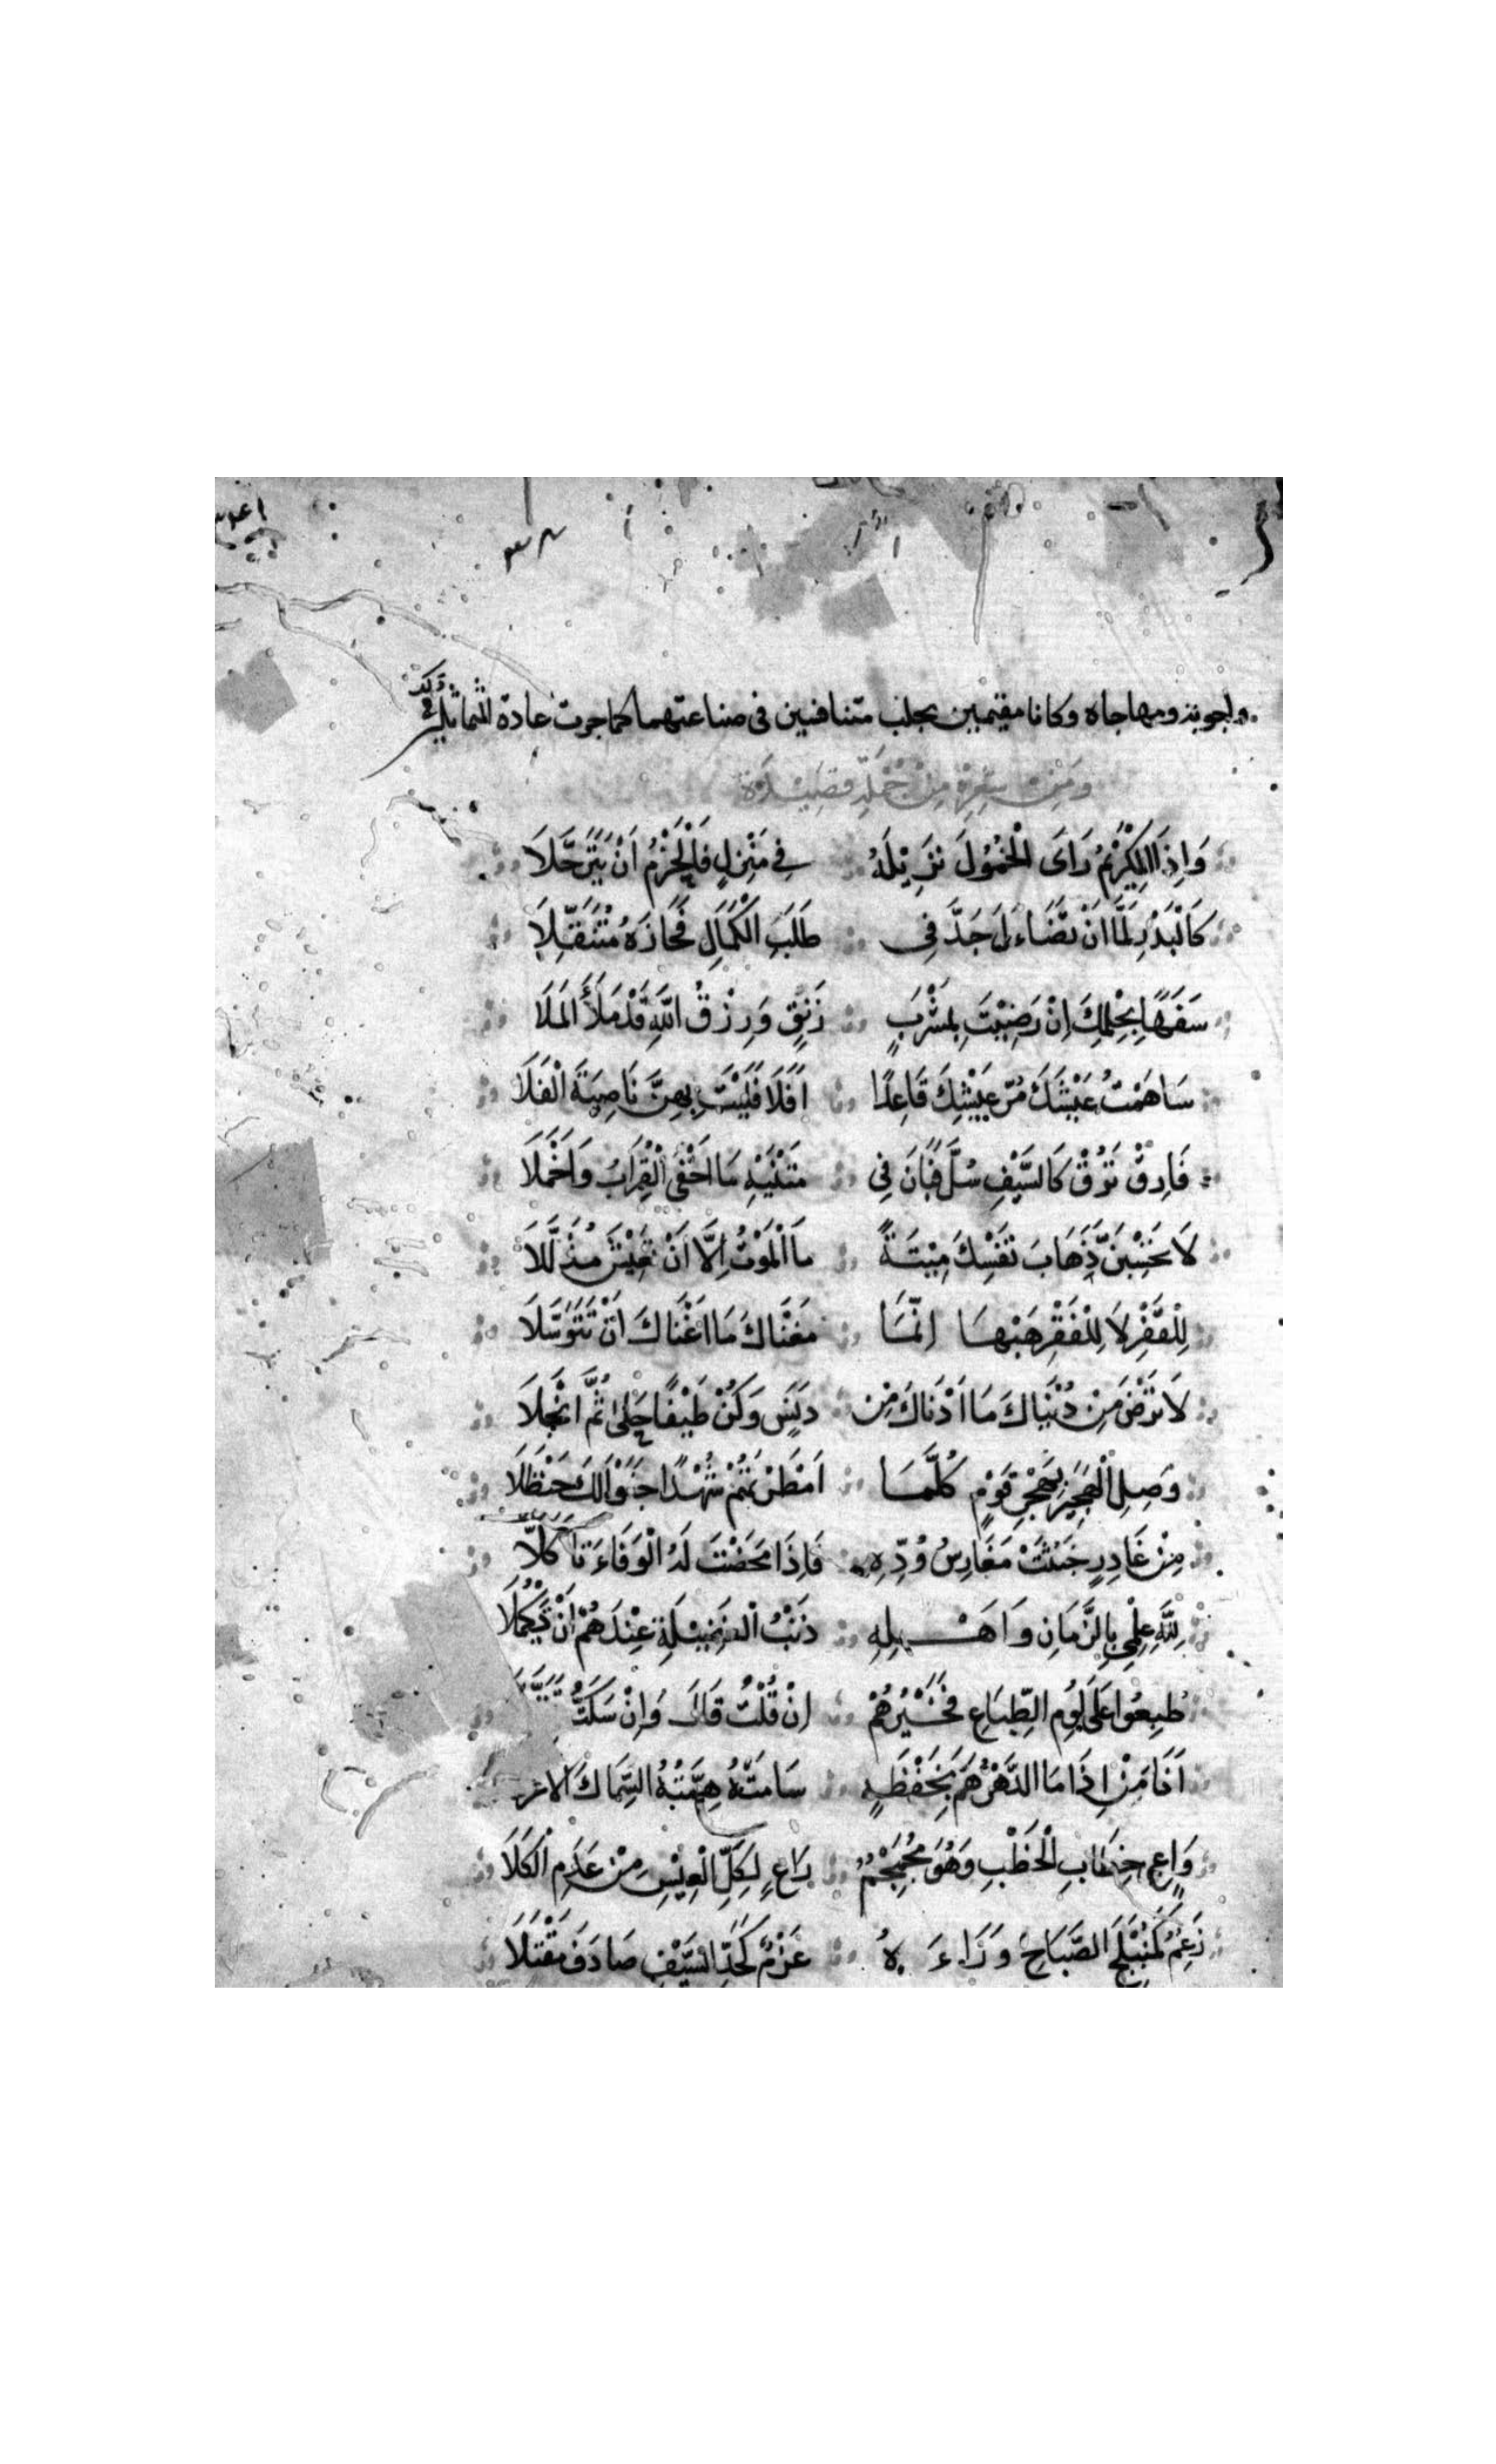 واجوبة ومهاجاة وكانا مقيمين بحلب متنافسين في صناعتهما كما جرت عادة المتماثلين في ذلك
ومن شعره من جملة قصيدة
وَاِذَا الكَرِيْمُ رَاَى الْخُمُوْلَ نَزِيْلَهُ فِي مَنْزِلٍ فَالْحَزْمُ اَنْ يَتَرَحَّلَا
كَالْبَدْرِ لَمَّا اَنْ تَضَاءَلَ جَدَّ فِى طَلَبِ الْكَمَالِ فَحَازَهُ مُتَنَقِّلَا
سَفَهًا بِحِلْمِكَ اِنْ رَضِيْتَ بِمَشْرَبٍ رَنِقٍ وَرِزْقُ اللَّهِ قَدْ مَلَأَ الْمَلَا
سَاهَمْتَ عَيْشَكَ مُرَّ عَيْشِكَ قَاعِدًا اَفَلَا فَلَيْتَ بِهِنَّ نَاصِيَةَ الْفَلَا
فَارِقْ تَرُقْ كَالسَّيْفِ سُلَّ فَبَانَ فِي مَتْنَيْهِ مَا اَخْفَى الْقِرَابُ وَاَخْمَلَا
لَا تَحْسِبَنَّ ذَهَابَ نَفْسِكَ مِيْتَةً مَا الْمَوْتُ اِلَّا اَنْ تَعِيْشَ مُذَلَّلَا
لِلْقَفْرِ لَا لِلْفَقْرِ هَبْهَا اِنَّمَا مَغْنَاكَ مَا اَغْنَاكَ اَنْ تَتَوَسَّلَا
لَا تَرْضَ مِنْ دُنْيَاكَ مَا اَدْنَاكَ مِنْ دَنَسٍ وَكُنْ طَيْفًا جَلَى ثُمَّ انْجَلَا
وَصِلِ الْهَجِيْرَ بِهَجْرِ قَوْمٍ كُلَّمَا اَمْطَرْتَهُمْ شُهْدًا جَنَوْا لَكَ حَنْظَلَا
مِنْ غَادِرٍ خَبُثَتْ مَغَارِسُ وُدِّهِ فَاِذَا مَحَضْتَ لَهُ الْوَفَاءَ تَاَوَّلَا
لِلَّهِ عِلْمِي بِالزَّمَانِ وَاَهْلِهِ ذَنْبُ الْفَضِيْلَةِ عِنْدَهُمْ اَنْ تَكْمُلَا
طُبِعُوا عَلَى لُؤْمِ الطِّبَاعِ فَخَيْرُهُمْ اِنْ قُلْتُ قَالَ وَاِنْ سَكَتُّ
اَنَا مَنْ اِذَا مَا الدَّهْرُ هَمَّ بِخَفْضِهِ سَامَتْهُ هِمَّتُهُ السِّمَاكَ الاعز
وَاعٍ خِطَابَ الْخَطْبِ وَهُوَ مُجَمْجَمٌ رَاعٍ لِكُلِّ الْعِيْسِ مِنْ عَدَمِ الْكَلَا
زَعْمٌ كَمُنْبَلِجِ الصَّبَاحِ وَرَاءَهُ عَزْمٌ كَحَدِّ السَّيْفِ صَادَفَ مَقْتَلَا